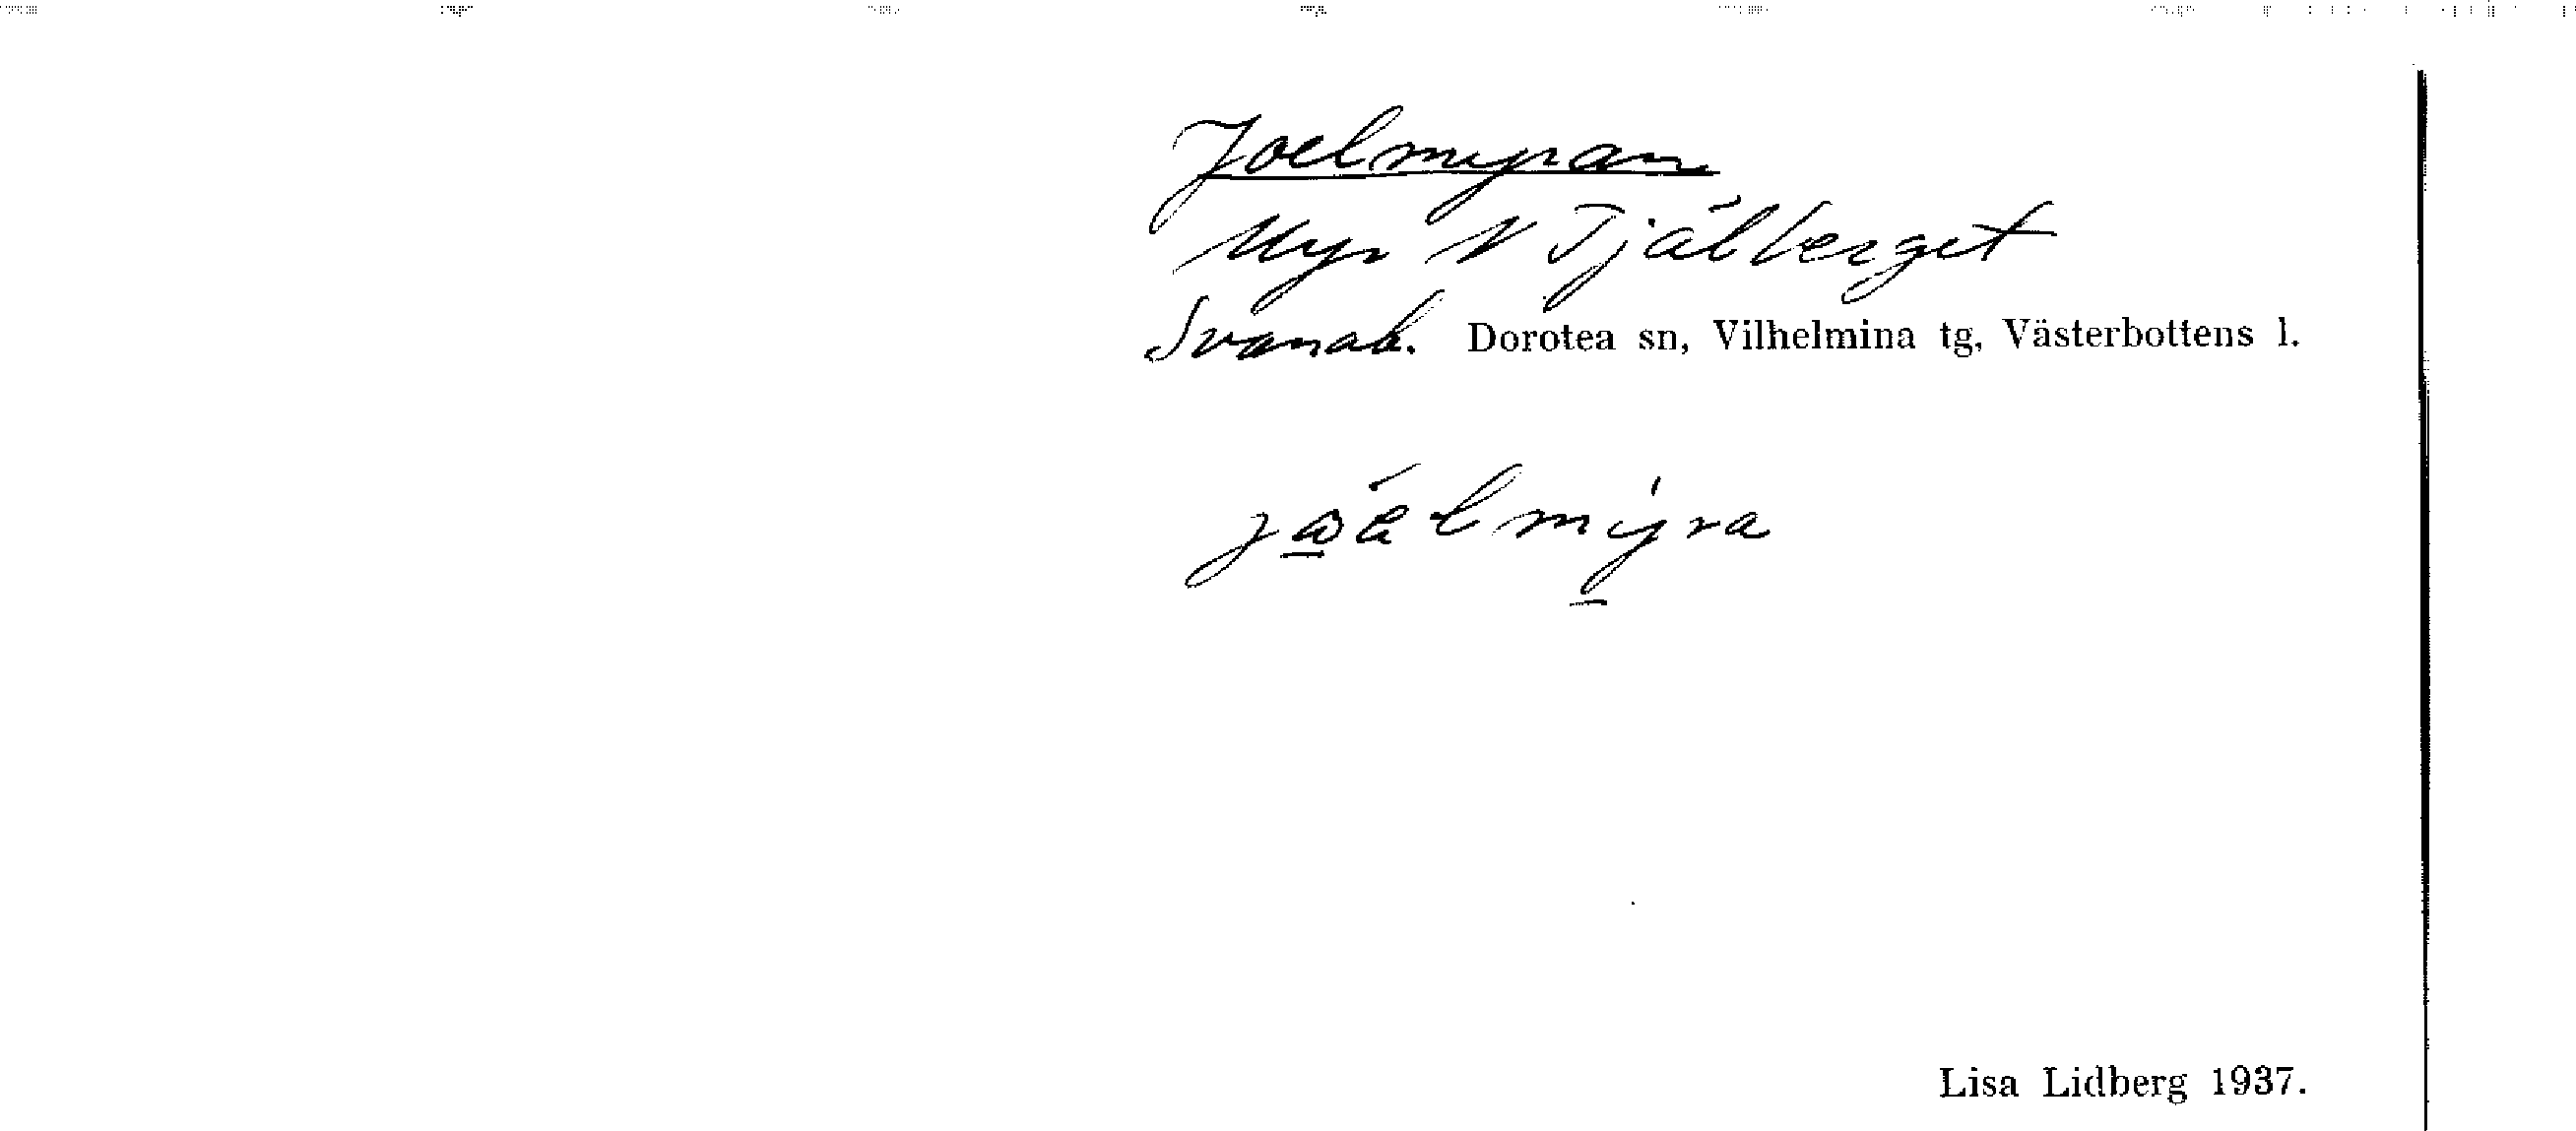 Joelmyran
Myr N Tjålberget
Svanab. Dorotea sn, Vilhelmina tg, Västerbottens l.
Lisa Lidberg 1937.